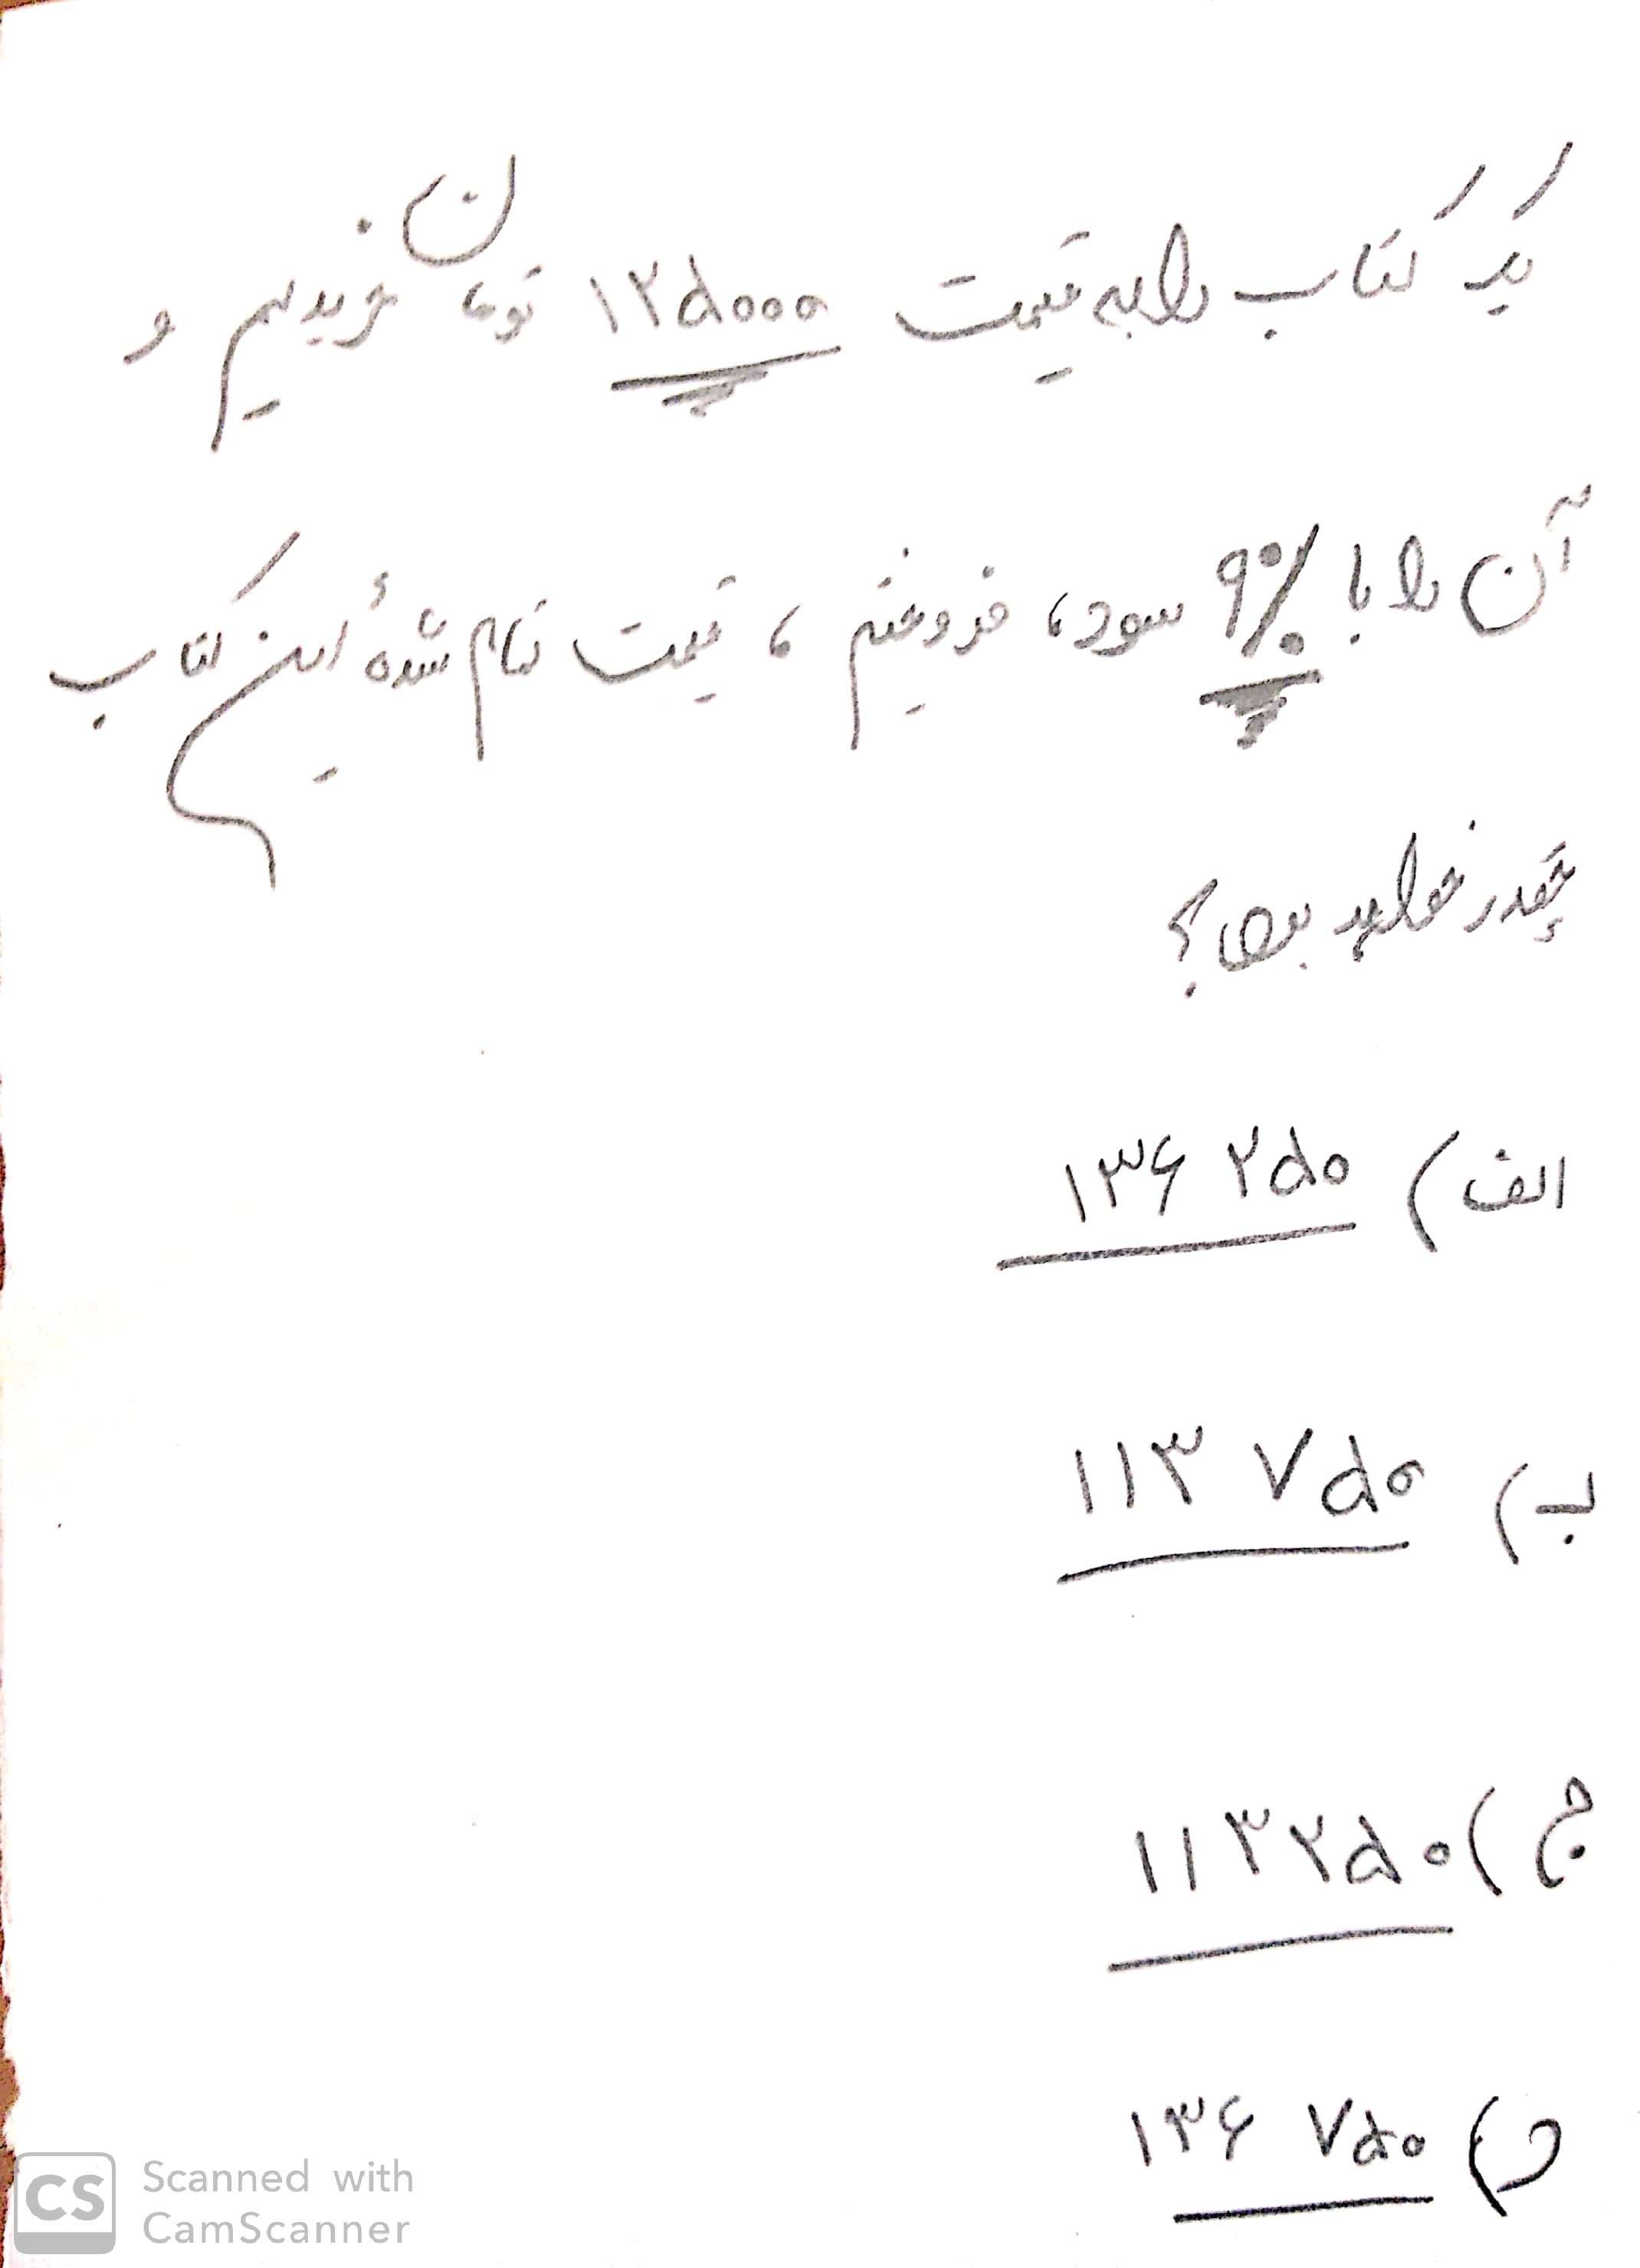 یک کتاب را به قیمت ۱۲۵۰۰۰ تومان خریدیم و
آن را با ۹٪ سود، فروختیم، قیمت تمام شدهٔ این کتاب
چقدر خواهد بود؟
الف) ۱۳۶۲۵۰
ب) ۱۱۳۷۵۰
ج) ۱۱۳۲۵۰
د) ۱۳۶۷۵۰
CS Scanned with
CamScanner